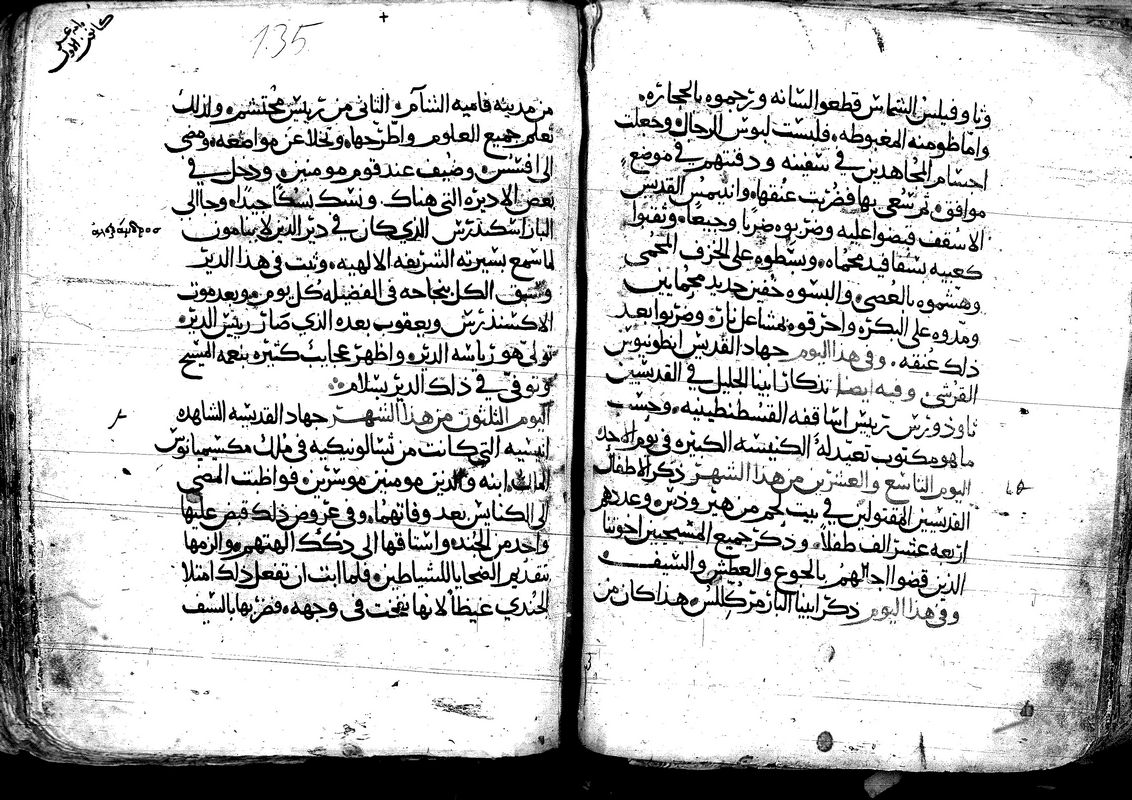 وثاوفيلس الشماس قطعوا لسانه ورجموه بالحجاره.
واما طومنه المغبوطه. فلبست لبوس الرجال وجعلت
اجسام المجاهدين في سفينه ودفنتهم في موضع
موافق. ثم سُعي بها فضربت عنقها. وانتيمس القديس
الاسقف قبضوا عليه وضربوه ضربا وجيعا. وثقبوا
كعبيه بسفافيد محماه. وبسطوه على الخزف المحمى
وهشموه بالعصي. والبسوه خفين حديد محمايين
ومدوه على البكره واحرقوه بمشاعل نار. وضربوا بعد
ذلك عنقه. وفي هدا اليوم جهاد القديس انطونيوس
القرشي وفيه ايضا تدكار ابينا الجليل في القديسين
ثاودورس رييس اساقفه القسطنطينيه. وحسب
ما هو مكتوب تعيد له الكنيسه الكبيره في يوم الاحد
اليوم التاسع والعشرين من هدا الشهر ذكر الاطفال
القديسين المقتولين في بيت لحم من هيرودس. وعددهم
اربعه عشر الف طفلا. وذكر جميع المسيحيين اخوتنا
الدين قضوا اجالهم بالجوع والعطش والسيف
وفي هدا اليوم ذكر ابينا البار مركللس هدا كان من
135
كانون الاول
من مدينه فاميه الشام الثاني من رييس محتشم. واذ
تعلم جميع العلوم واطرحها. وتخلا عن مواضعه. ومضى
الى افسس. وضيف عند قوم مومنين. ودخل في
بعض الاديره التي هناك. ونسك نسكا جدا. وجا الى
البار اسكندرس الدي كان في دير الدين لا ينامون
لما سمع بسيرته الشريفه الالهيه. وثبت في هدا الدير
وسبق الكل بنجاحه في الفضيله كل يوم. وبعد موت
الاكسندرس ويعقوب بعده الدي صار رييس الدير.
تولى هو رياسه الدير. واظهر عجايب كثيره بنعمه المسيح
وتوفي في ذلك الدير بسلام
اليوم الثلثون من هدا الشهر جهاد القديسه الشاهده
انيسيه التي كانت من ثسالونيكيه في ملك مكسميانوس
الملك. ابنه والدين مومنين موسرين. فواظبت المضي
الى الكنايس بعد وفاتهما. وفي عروض ذلك قبض عليها
واحد من الجند. واستاقها الى دكك الهتهم. والزمها
بتقديم الضحايا للشياطين. فلما ابت ان تفعل ذلك امتلا
الجندي غيظا لانها نفخت في وجهه. فضربها بالسيف